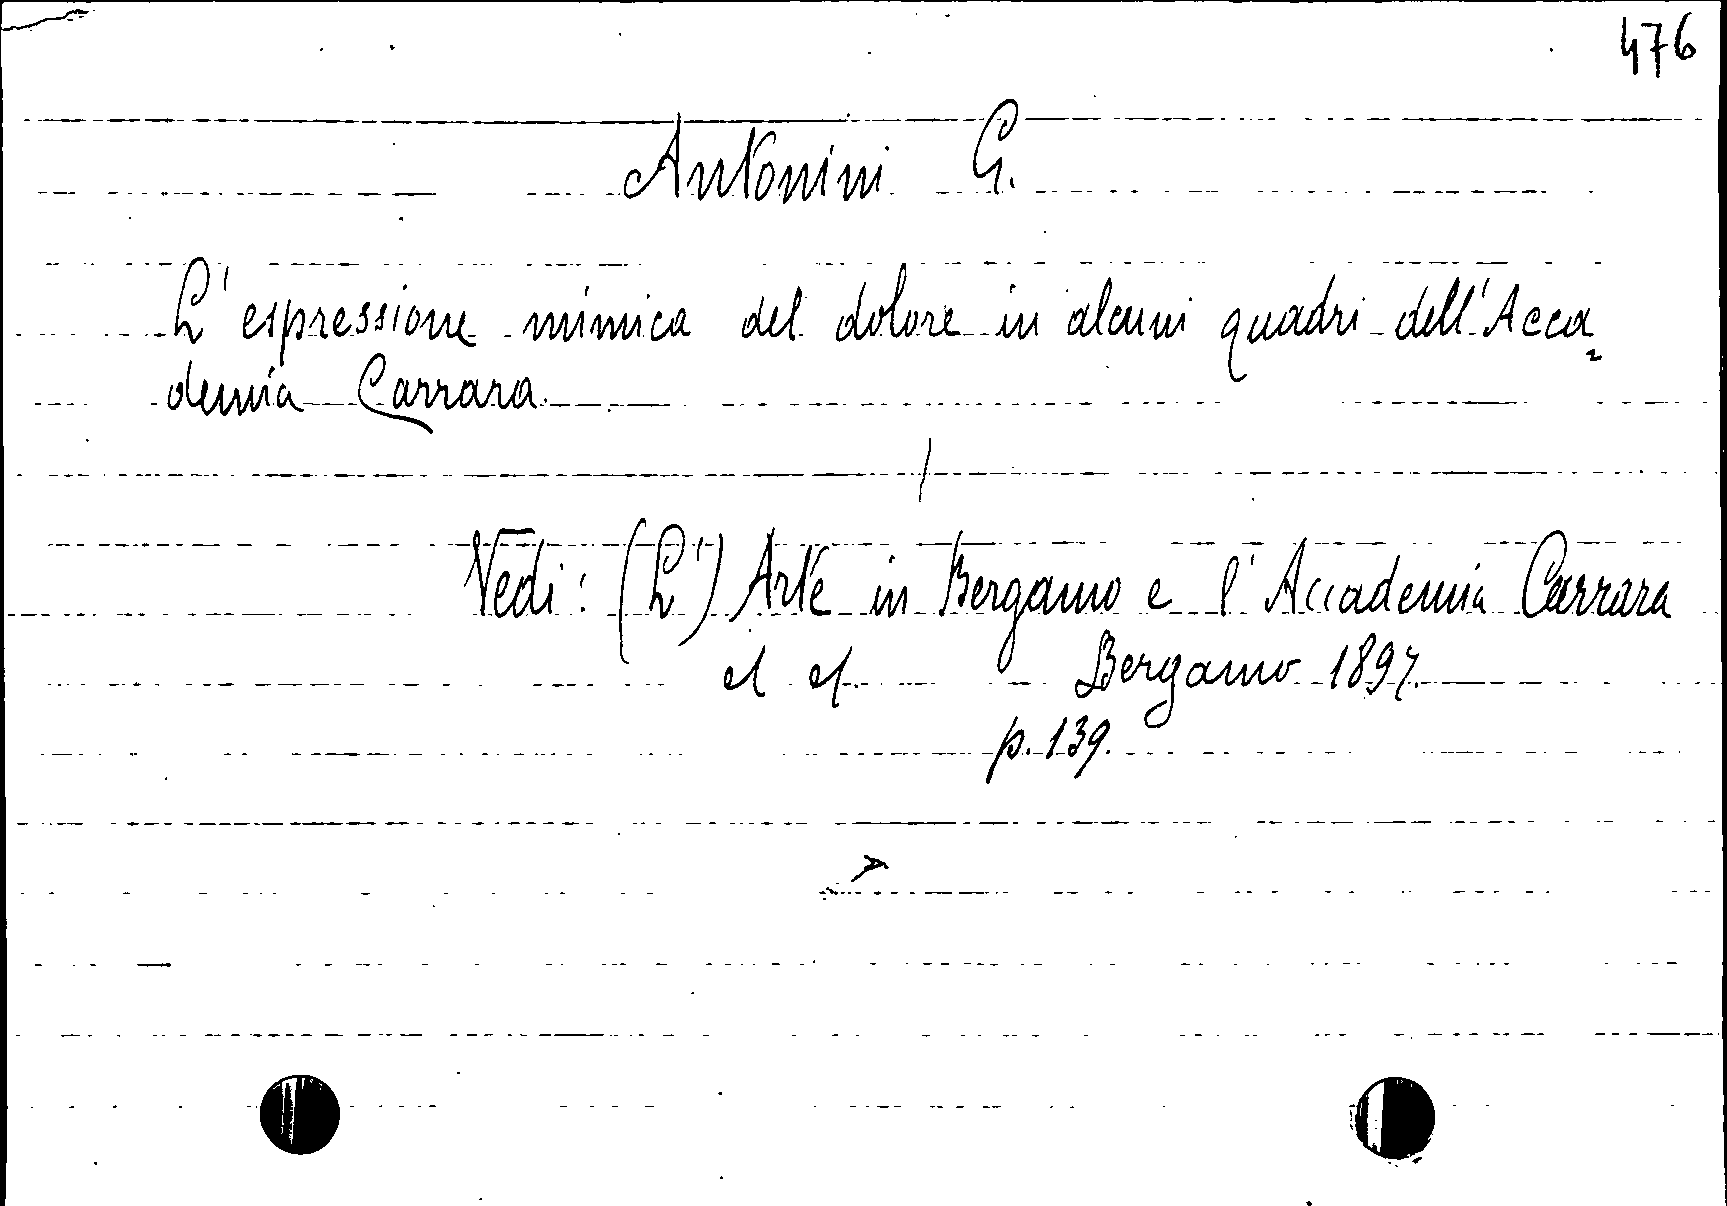 476
Antonini G.
L'espressione mimica del dolore in alcuni quadri dell'Acca=
demia Carrara
Vedi: (L') Arte in Bergamo e l'Accademia Carrara
Bergamo 1897.
p. 139.